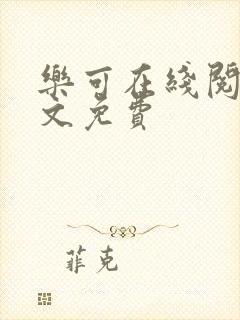 樂可在綫閱
文免費
菲克